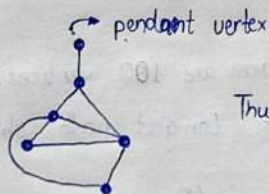 pendant vertex
Thu